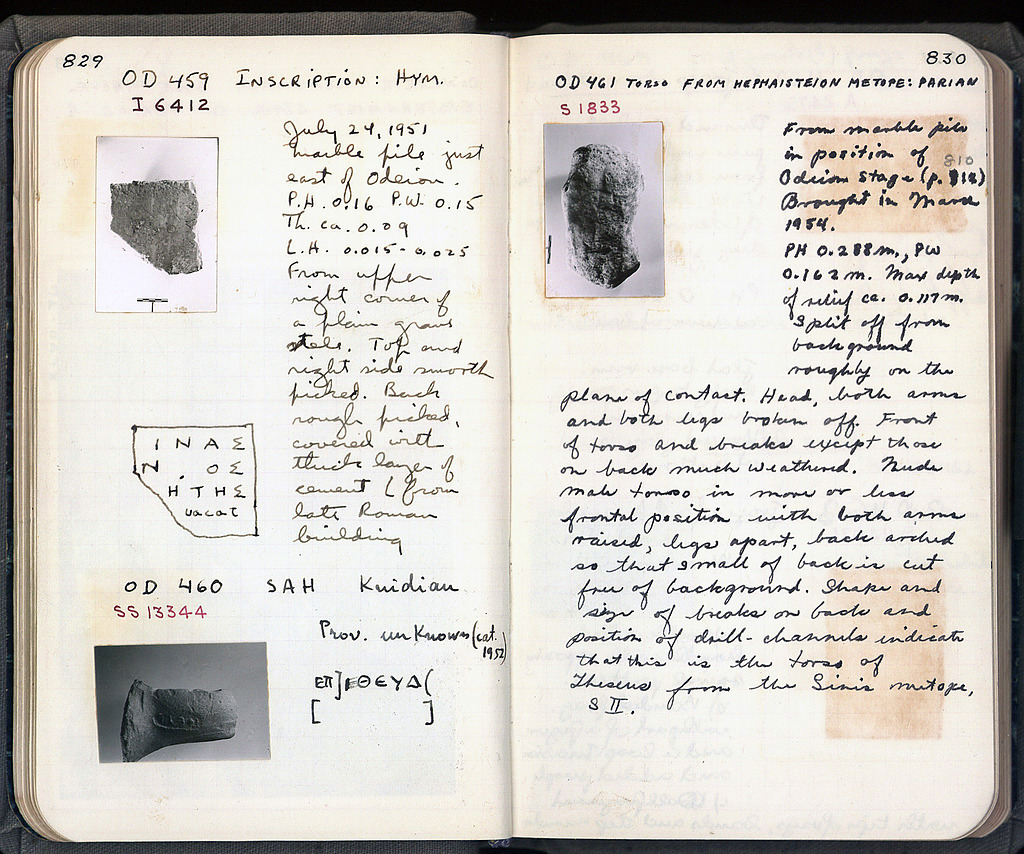 829
OD 459 INSCRIPTION: HYM.
I 6412
July 24, 1951
marble pile just
east of Odeion.
P.H. 0.16 P.W. 0.15
Th. ca. 0.09
L.H. 0.015-0.025
From upper
right corner of
a plain grave
stele. Top and
right side smooth
picked. Back
rough picked,
covered with
thick layer of
cement (from
late Roman
building
ΙΝΑΣ
Ν. ΟΣ
Η ΤΗΣ
vacat
OD 460 SAH Knidian
SS 13344
Prov. unknown (cat.
1952)
ΕΠ]ΙΘΕΥΔ(
[ ]
830
OD 461 TORSO FROM HEPHAISTEION METOPE: PARIAN
S 1833
From marble pile
in position of
810
Odeion stage (p. 812)
Brought in March
1954.
PH 0.288 m., PW
0.162 m. Max depth
of relief ca. 0.117 m.
Split off from
background
roughly on the
plane of contact. Head, both arms
and both legs broken off. Front
of torso and breaks except those
on back much weathered. Nude
male torso in more or less
frontal position with both arms
raised, legs apart, back arched
so that small of back is cut
free of background. Shape and
size of breaks on back and
position of drill-channels indicate
that this is the torso of
Theseus from the Sinis metope,
S II.